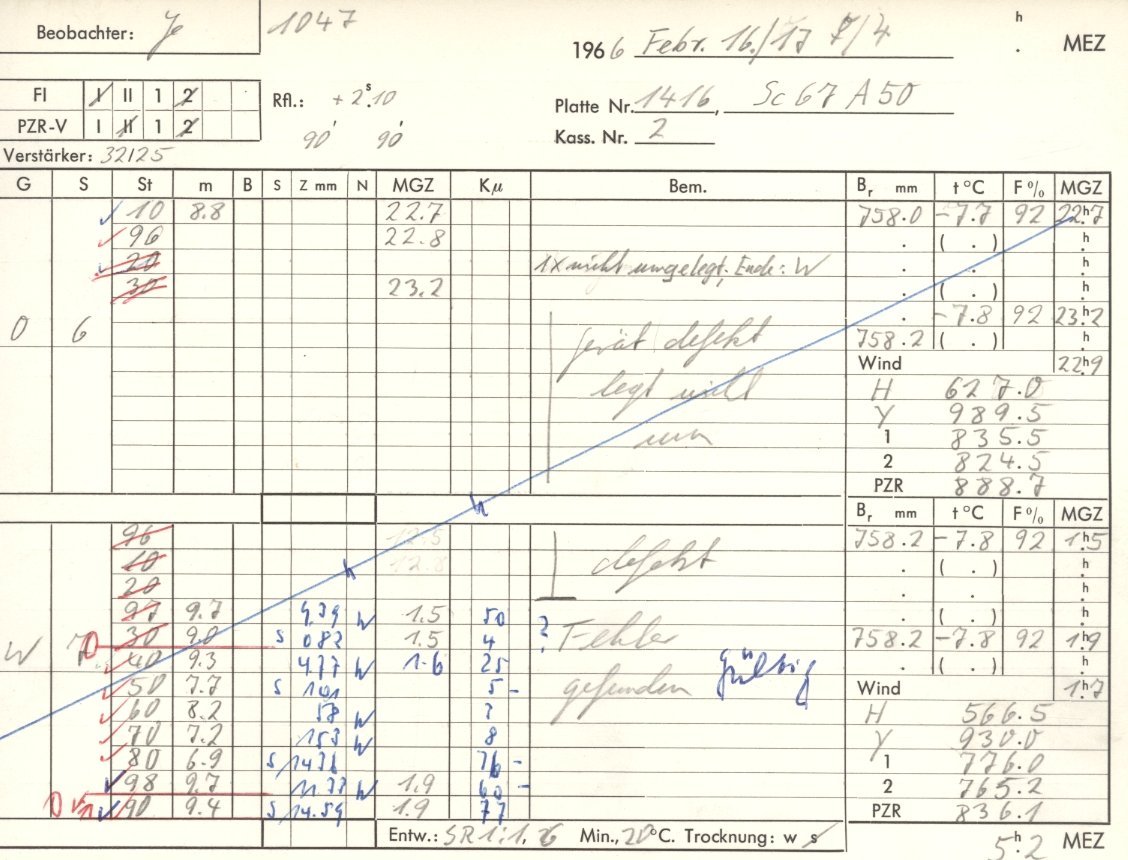 Beobachter: Je 1047
1966 Febr. 16./17 7/4 h . MEZ
FI I II 1 2 Rfl.: + 2 s.10 Platte Nr. 1416, Sc 67 A 50
PZR-V I II 1 2 90' 90' Kass. Nr. 2
Verstärker: 32125
G S St m B S Z mm N MGZ Kμ Bem. Br mm t °C F % MGZ
10 8.8 22.7 758.0 -7.7 92 22h.7
96 22.8 . ( . ) h.
20 1x nicht umgelegt; Ende: W . . h.
30 23.2 . ( . ) h.
. -7.8 92 23h.2
O 6 gerät defekt 758.2 ( . ) h
Wind 22h9
legt nicht H 627.0
Y 989.5
um 1 835.5
2 824.5
PZR 888.7
h Br mm t °C F % MGZ
96 12.5 758.2 -7.8 92 1h5
10 12.8 defekt . ( . ) h.
20 . . h.
97 9.7 9.39 W 1.5 50 ? . ( . ) h.
30 9.0 S 082 1.5 4 Fehler 758.2 -7.8 92 1h9
W 7 40 9.3 4.77 W 1.6 25 . ( . ) h.
50 7.7 S 101 5 - gefunden gültig Wind 1h7
60 8.2 58 W ? H 566.5
70 7.2 153 W 8 Y 930.0
80 6.9 S 1436 76 - 1 776.0
98 9.7 11.77 W 1.9 60 - 2 765.2
90 9.4 S 14.59 1.9 77 PZR 836.1
Entw.: SR 1:1, 26 Min., 20°C. Trocknung: w s 5h.2 MEZ